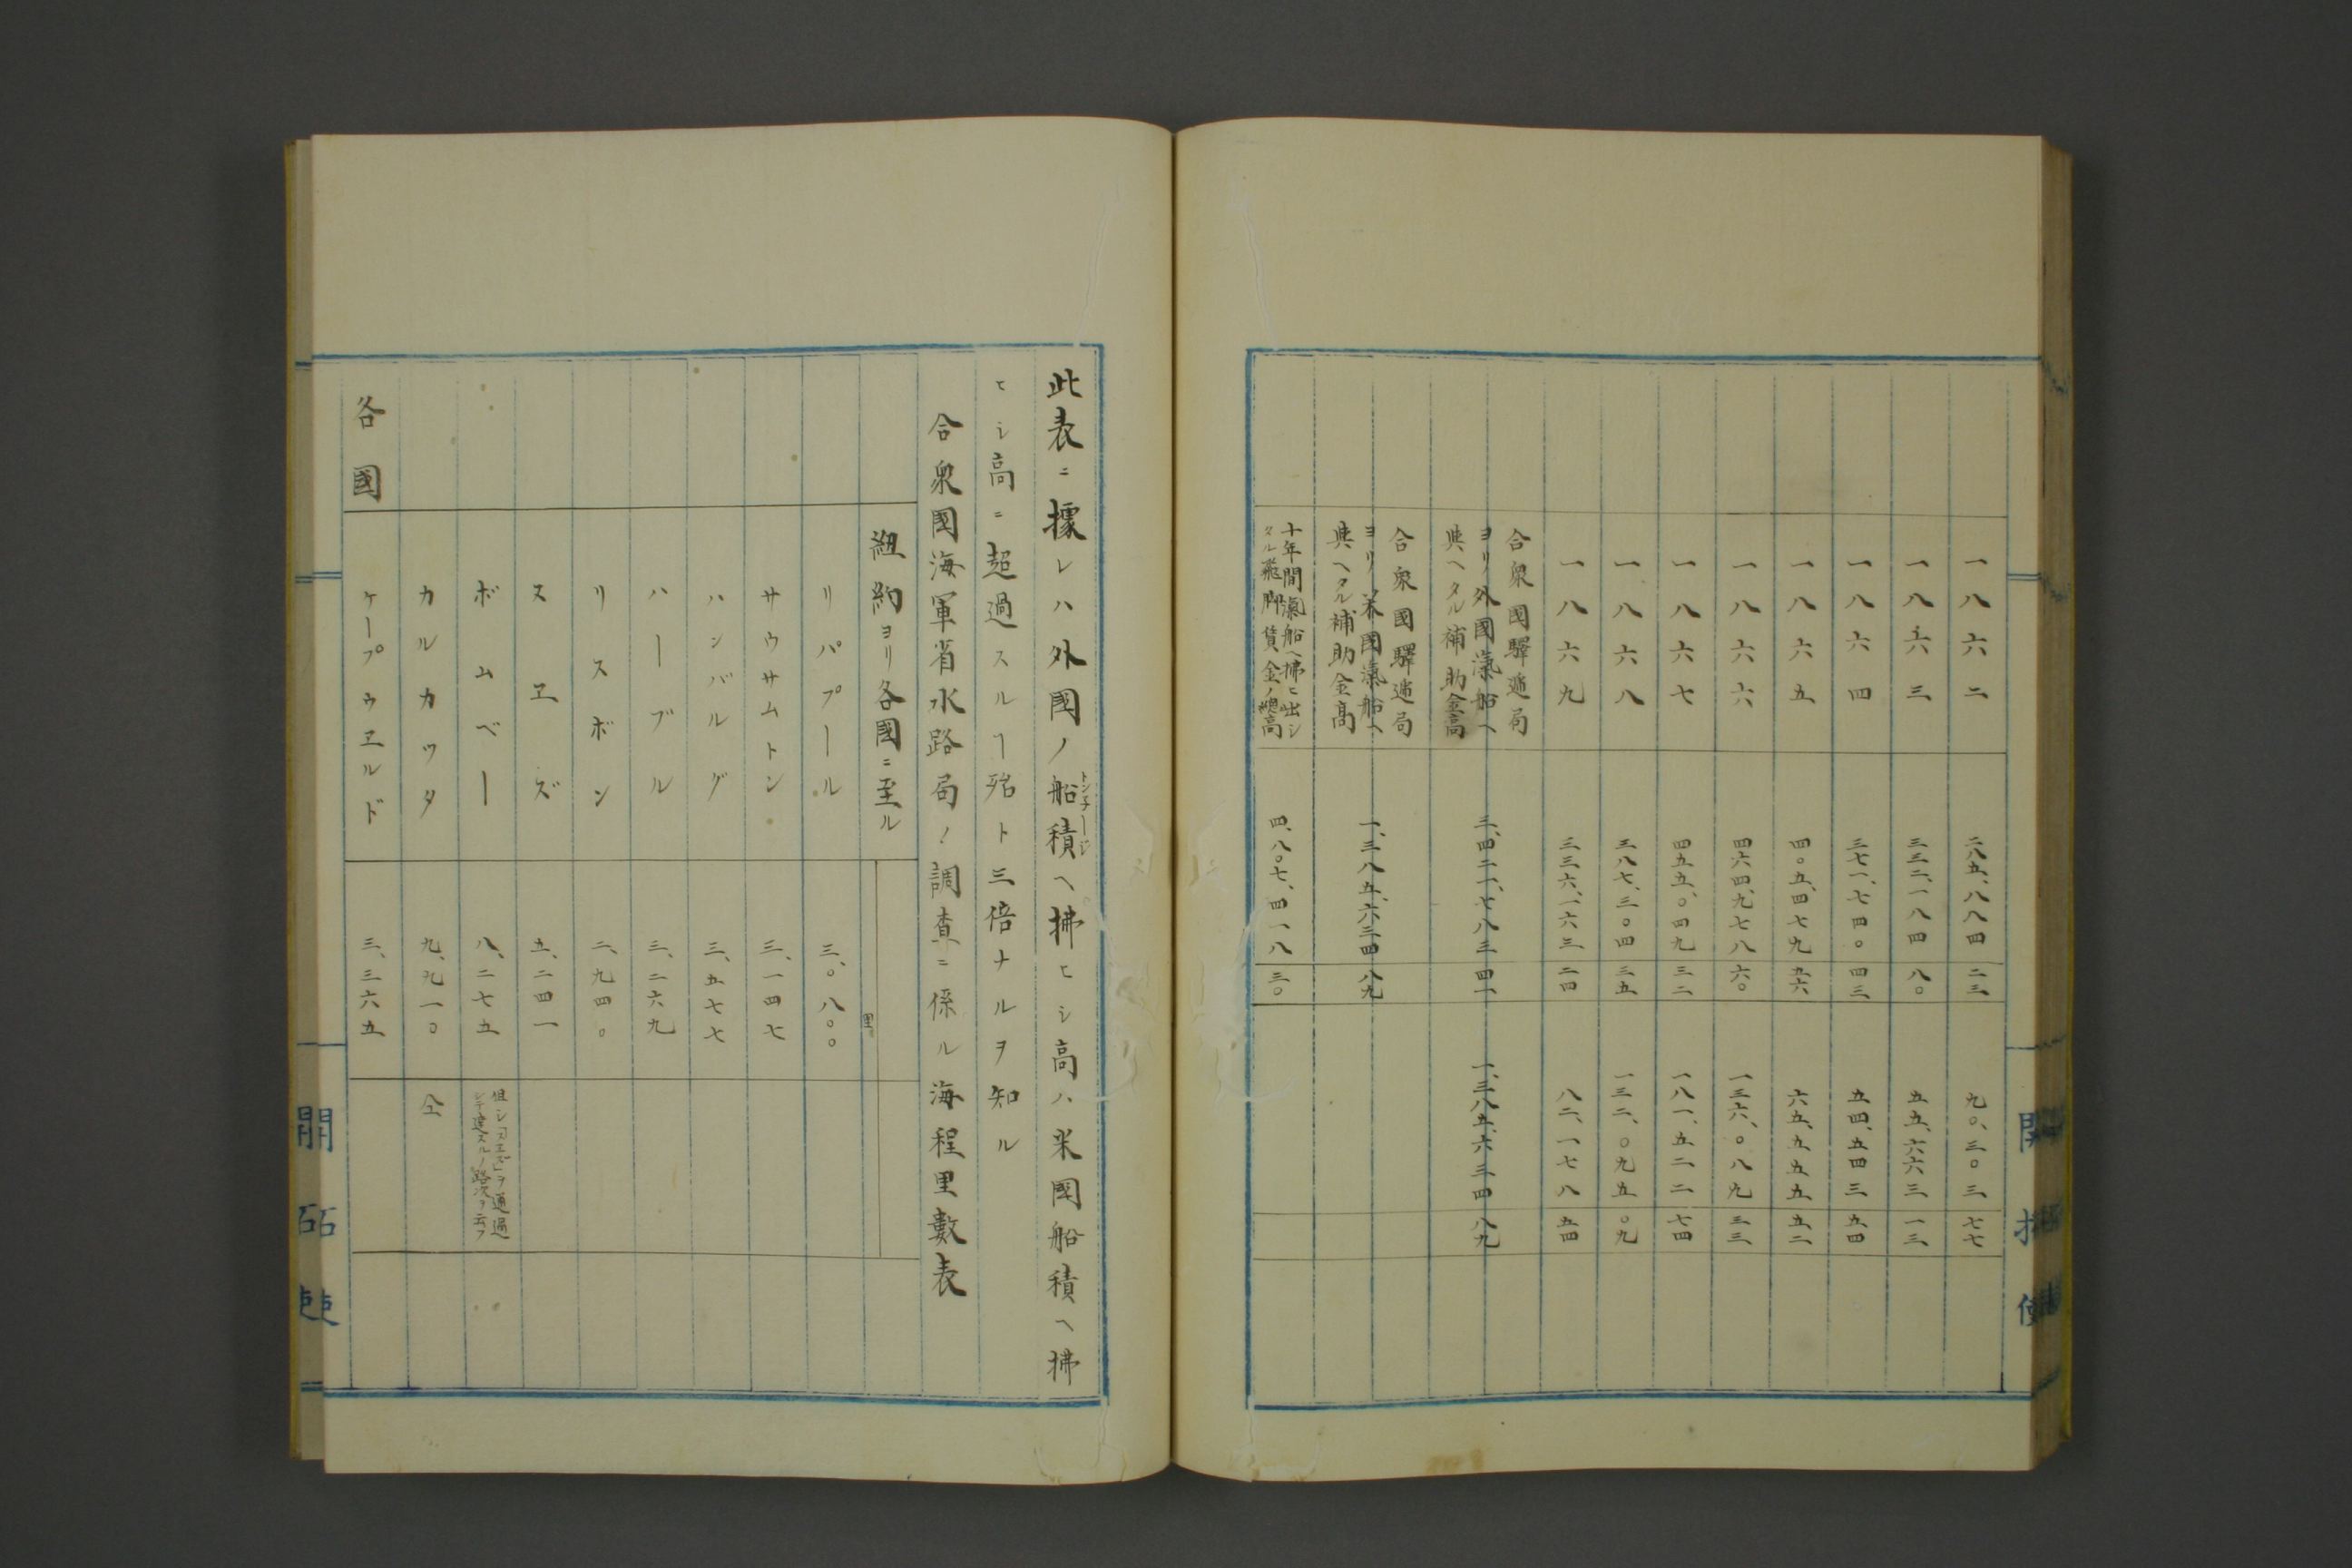 一八六二 二八五、八八四 二三 九〇、三〇三 七七
一八六三 三三二、一八四 八〇 五五、六六三 一三
一八六四 三七一、七四〇 四三 五四、五四三 五四
一八六五 四〇五、四七九 五六 六五、九五五 五二
一八六六 四六四、九七八 六〇 一三六、〇八九 三三
一八六七 四五五、〇四九 三二 一八一、五二二 七四
一八六八 三八七、三〇四 三五 一三二、〇九五 〇九
一八六九 三三六、一六三 二四 八二、一七八 五四
合衆國驛遞局
ヨリ外國滊船ヘ
與ヘタル補助金高 三、四二一、七八三 四一 一、三八五、六三四 八九
合衆國驛遞局
ヨリ米國滊船ヘ
與ヘタル補助金高 一、三八五、六三四 八九
十年間滊船ヘ拂ヒ出シ
タル飛脚賃金ノ總高 四、八〇七、四一八 三〇
開拓使
此表ニ據レハ外國ノ船積ヘ拂ヒシ高ハ米國船積ヘ拂
トン子ージ
ヒシ高ニ超過スルヿ殆ト三倍ナルヲ知ル
合衆國海軍省水路局ノ調査ニ係ル海程里數表
紐約ヨリ各國ニ至ル 里
リパプール 三、〇八〇〇
サウサムトン 三、一四七
ハンバルグ 三、五七七
ハーブル 三、二六九
リスボン 二、九四〇
スヱズ 五、二四一
ボムベー 八、二七五 但シ「スエズ」ヲ通過
シテ達スルノ路次ヲ云フ
カルカツタ 九、九一〇 仝
各國 ケープウヱルド 三、三六五
開拓使